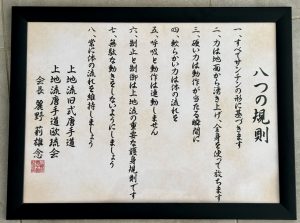 八つの規則
一、すべてサンチンの形に基づきます
二、力は地面から湧き上げ、全身を使って放ちます
三、硬い力は動作が当たる瞬間に
四、軟らかい力は体の流れを
五、呼吸と動作は連動しません
六、制止と制御は上地流の重要な護身規則です
七、無駄な動きをしないようにしましょう
八、常に体の流れを維持しましょう
上地流旧式唐手道
上地流唐手道欧琉会
会長